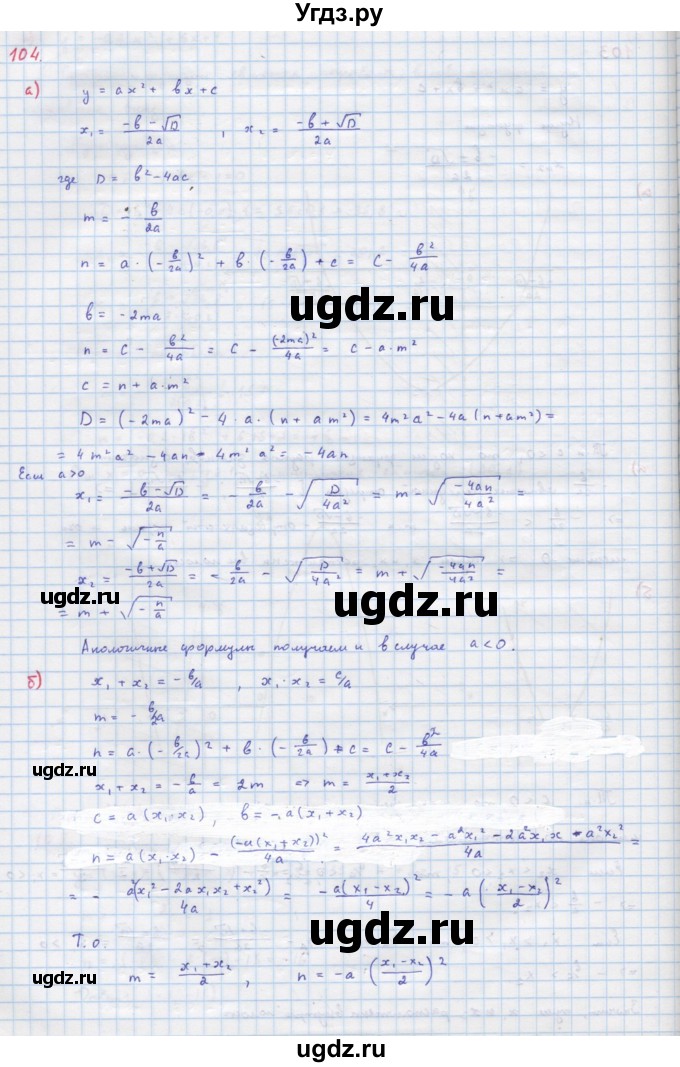 Угдз.ру
104.
а) y = ax² + bx + c
x₁ = (-b - √D)/2a , x₂ = (-b + √D)/2a
где D = b² - 4ac,
m = - b/2a
n = a · (-b/2a)² + b · (-b/2a) + c = c - b²/4a
b = -2ma
ugdz.ru
n = c - b²/4a = c - (-2ma)²/4a = c - a·m²
c = n + a·m²
D = (-2ma)² - 4·a·(n + am²) = 4m²a² - 4a(n + am²) =
= 4m²a² - 4an - 4m²a² = -4an
Если a>0
x₁ = (-b - √D)/2a = - b/2a - √(D/4a²) = m - √(-4an/4a²) =
ugdz.ru
= m - √(-n/a)
x₂ = (-b + √D)/2a = - b/2a - √(D/4a²) = m + √(-4an/4a²) =
ugdz.ru
= m + √(-n/a)
ugdz.ru
Аналогичные формулы получаем и в случае a<0.
б) x₁ + x₂ = -b/a , x₁·x₂ = c/a
m = - b/2a
n = a · (-b/2a)² + b · (-b/2a) + c = c - b²/4a
ugdz.ru
x₁ + x₂ = - b/a = 2m => m = (x₁+x₂)/2
c = a(x₁·x₂), b = -a(x₁+x₂)
ugdz.ru
n = a(x₁·x₂) - (-a(x₁+x₂))²/4a = (4a²x₁x₂ - a²x₁² - 2a²x₁x - a²x₂²)/4a =
ugdz.ru
= - a(x₁² - 2ax₁x₂ + x₂²)/4a = -a(x₁-x₂)²/4 = -a((x₁-x₂)/2)²
ugdz.ru
Т.о.
m = (x₁+x₂)/2 , n = -a·((x₁-x₂)/2)²
ugdz.ru
ugdz.ru